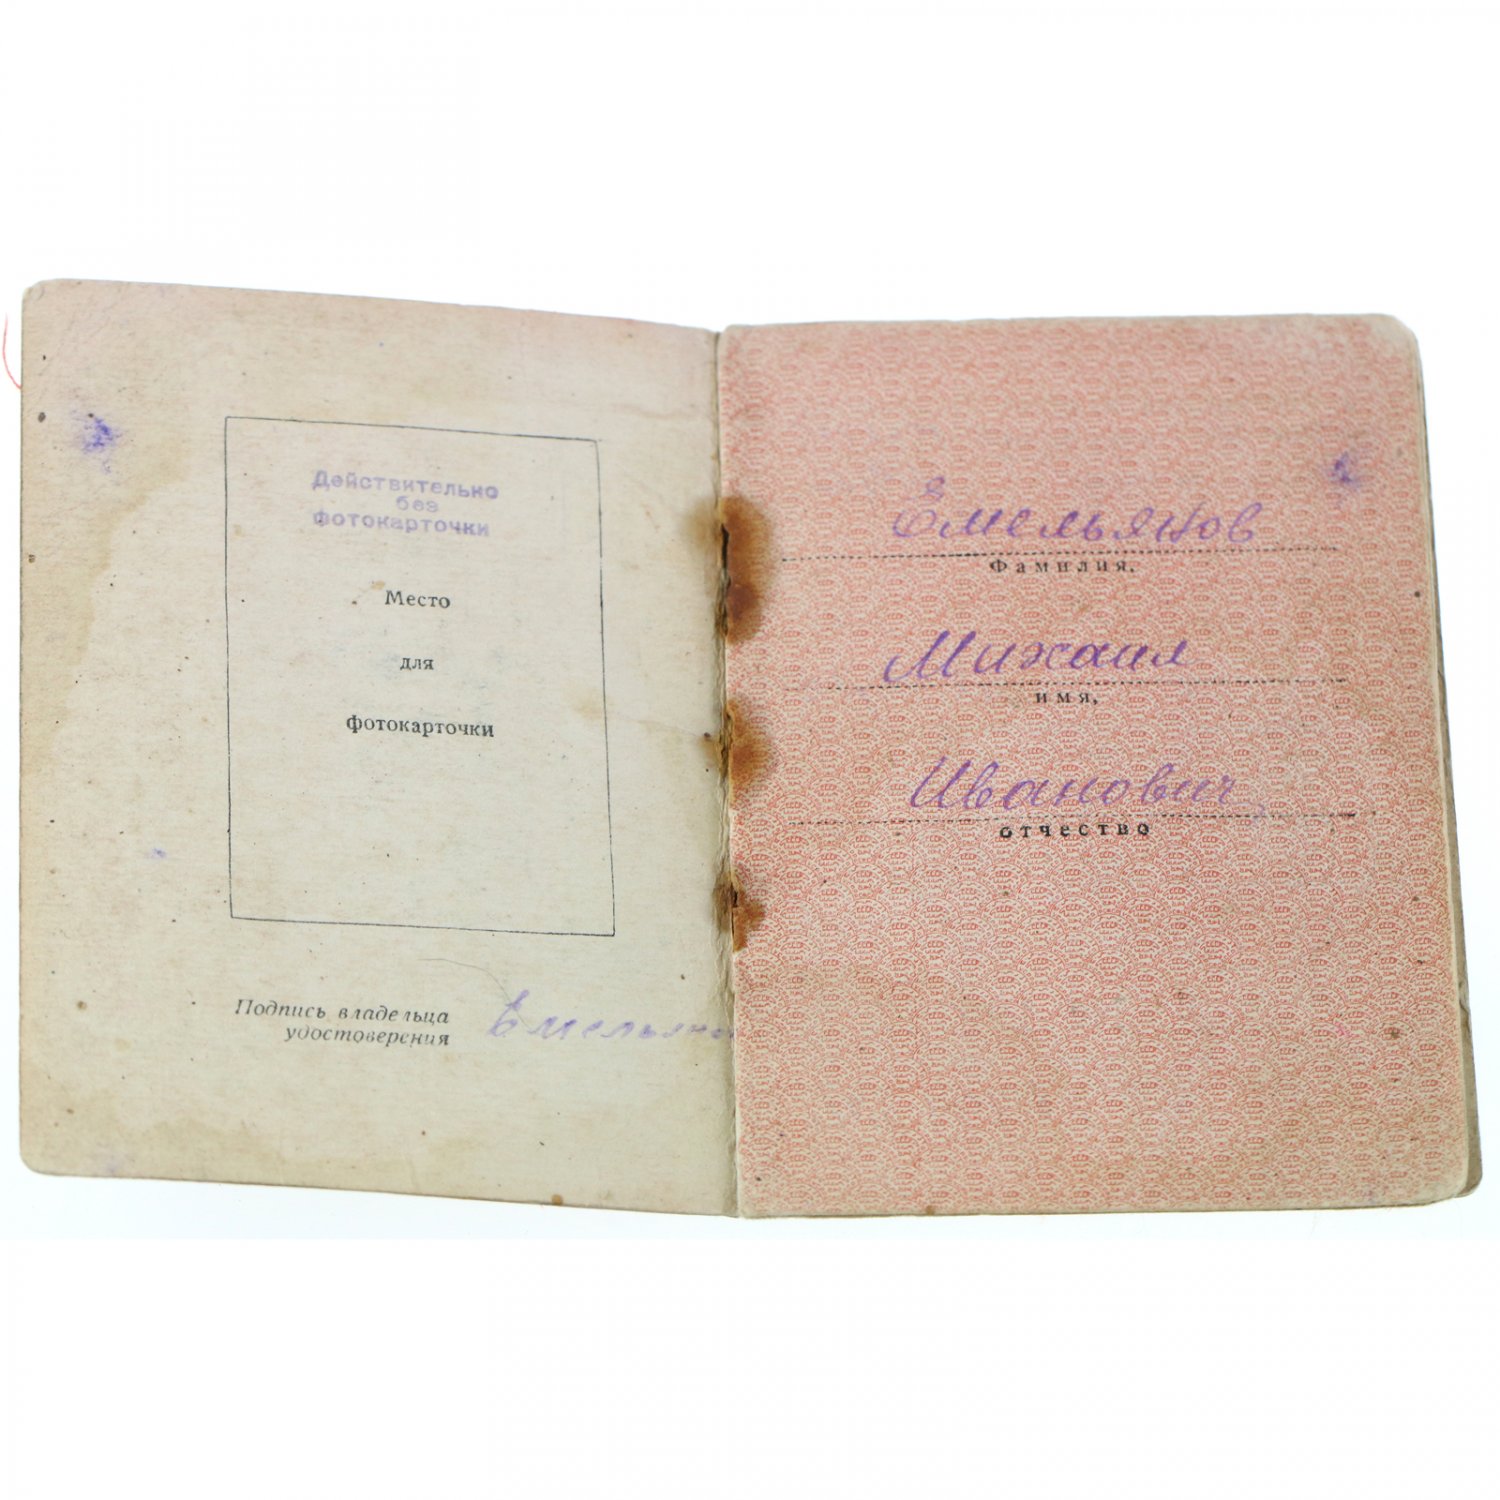 Действительно
без
фотокарточки
Место
для
фотокарточки
Подпись владельца
удостоверения
Емельянов
Фамилия,
Михаил
имя,
Иванович
отчество